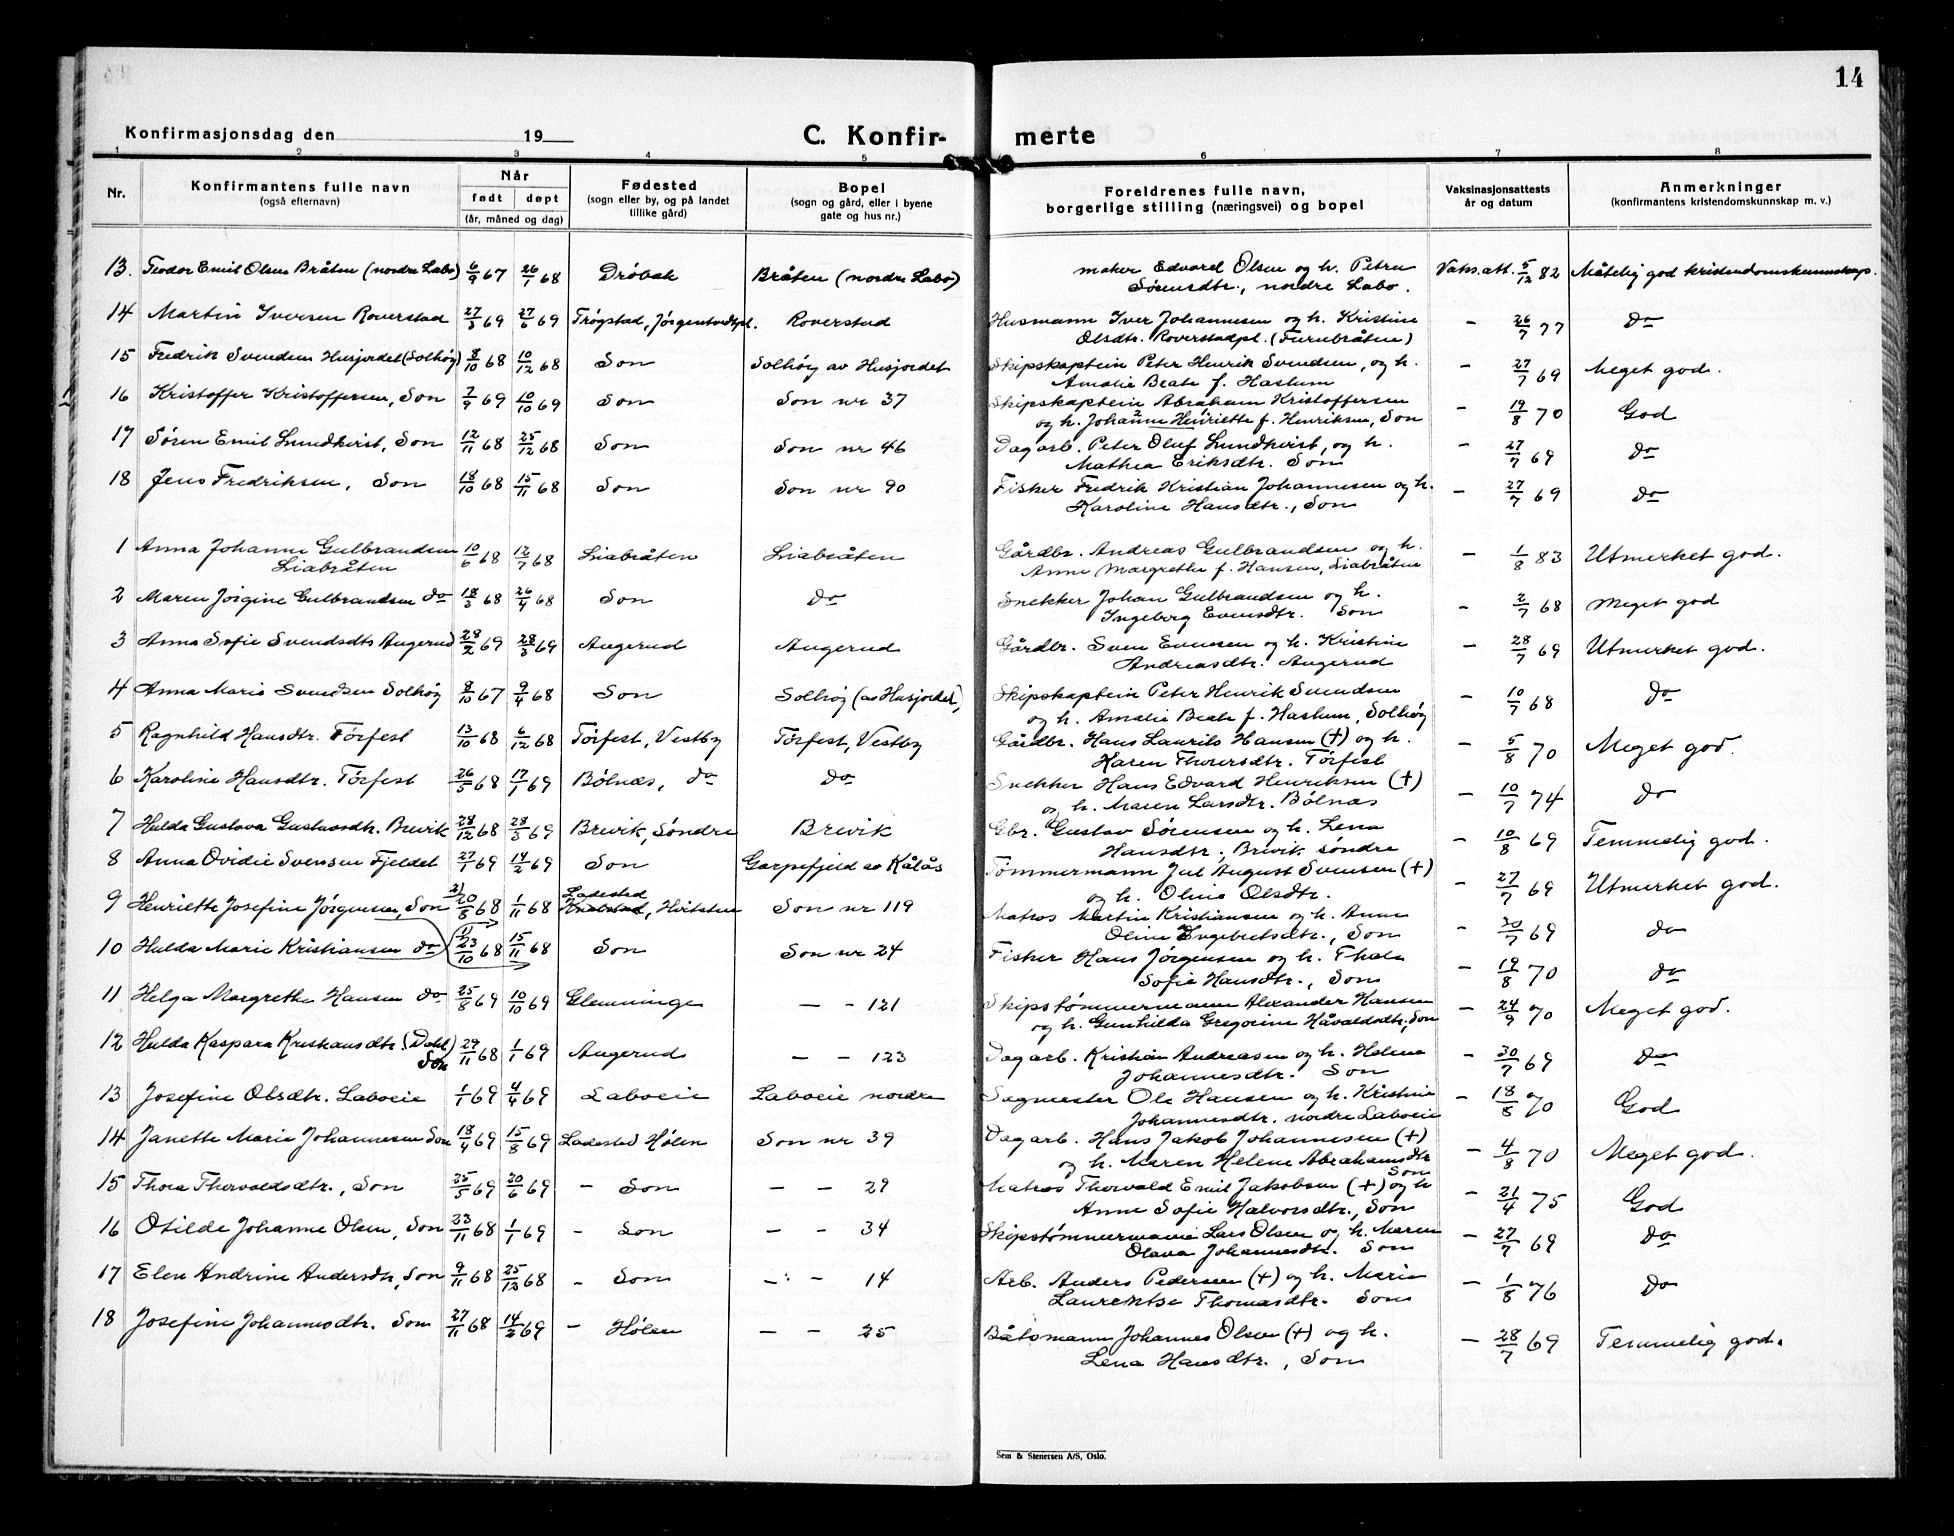 14
Konfirmasjonsdag den 19
C. Konfir- merte
1 2 3 4 5 6 7 8
Nr.
Konfirmantens fulle navn
(også efternavn)
Når
født døpt
(år, måned og dag)
Fødested
(sogn eller by, og på landet
tillike gård)
Bopel
(sogn og gård, eller i byene
gate og hus nr.)
Foreldrenes fulle navn,
borgerlige stilling (næringsvei) og bopel
Vaksinasjonsattests
år og datum
Anmerkninger
(konfirmantens kristendomskunnskap m. v.)
13. Teodor Emil Olsen Bråten (nordre Labo) 6/9 67 26/1 68 Drøbak Bråten (nordre Labo) maker Edvard Olsen og h. Petra Vaks.att. 5/12 82 Måtelig god kristendomskunnskap.
Sørensdtr., nordre Labo.
14 Martin Iversen Roverstad 27/3 69 27/6 69 Trøgstad, Roverstad Husmann Iver Johannesen og h. Kristine - 26/7 77 do
Olsdtr. Roverstadpl. (Furubråten)
15 Fredrik Svendsen Husjordet (Solhøy) 8/10 68 10/12 68 Son Solhøy av Husjordet Skipskaptein Peter Henrik Svendsen, og h. - 27/7 69 Meget god.
Amalie Beate f. Haslum
16 Kristoffer Kristoffersen, Son 7/9 69 10/10 69 Son Son nr 37 Skipskaptein Abraham Kristoffersen - 19/8 70 God
og h. Johanne Henriette f. Henriksen, Son
17 Søren Emil Lundkvist, Son 12/11 68 25/12 68 Son Son nr 46 Dagarb. Peter Oluf Lundkvist, og h. - 27/7 69 do
Mathea Eriksdtr. Son
18 Jens Fredriksen, Son 18/10 68 15/11 68 Son Son nr 90 Fisker Fredrik Kristian Johannesen og h. - 27/7 69 do
Karoline Hansdtr., Son
1 Anna Johanne Gulbrandsen 10/6 68 12/7 68 Liabråten Liabråten Gårdbr. Andreas Gulbrandsen og h. - 1/8 83 Utmerket god.
Liabråten Anne Margrethe f. Hansen, Liabråten
2 Maren Jørgine Gulbrandsen do 18/3 68 26/4 68 Son do Snekker Johan Gulbrandsen og h. - 2/7 68 Meget god
Ingeborg Evensdtr. Son
3 Anna Sofie Svendsdtr Augerud 28/2 69 28/3 69 Augerud Augerud Gårdbr. Sven Evensen og h. Kristine - 28/7 69 Utmerket god.
Andreasdtr. Augerud
4 Anna Marie Svendsen Solhøy 8/10 67 9/4 68 Son Solhøy (av Husjordet) Skipskaptein Peter Henrik Svendsen - 10/7 68 do
og h. Amalie Beate f. Haslum, Solhøy
5 Ragnhild Hansdtr. Tørfest 13/10 68 6/12 68 Tørfest, Vestby Tørfest, Vestby Gårdbr. Hans Laurits Hansen (+) og h. - 5/8 70 Meget god.
Karen Thorersdtr. Tørfest
6 Karoline Hansdtr. Tørfest 26/5 68 17/1 69 Bølnæs, do do Snekker Hans Edvard Henriksen (+) - 10/7 74 do
og h. Maren Larsdtr. Bølnæs
7 Hulda Gustava Gustavsdtr. Brevik 28/12 68 28/3 69 Brevik, Søndre Brevik Gbr. Gustav Sørensen og h. Lena - 10/8 69 Temmelig god.
Hansdtr., Brevik søndre
8 Anna Ovidie Svensen Fjeldet 27/1 69 14/2 69 Son Garpefjeld av Kålås Tømmermann Jul August Svensen (+) - 27/7 69 Utmerket god.
og h. Oline Olsdtr.
9 Henriette Josefine Jørgensen, Son 2) 20/5 68 1/11 68 Ladested, Hvitsten Son nr 119 Matros Martin Kristiansen og h. Anne - 30/7 69 do
Oline Engebretsdtr., Son
10 Hulda Marie Kristiansen do 1) 23/10 68 15/11 68 Son Son nr 24 Fisker Hans Jørgensen og h. Thala - 19/8 70 do
Sofie Hansdtr., Son
11 Helga Margrethe Hansen do 25/8 69 10/10 69 Glemminge - - 121 Skipstømmermann Alexander Hansen - 24/9 70 Meget god.
og h. Gunhilda Gregorine Håvaldsdtr, Son
12 Hulda Kaspara Kristiansdtr. (Dahl) 29/11 68 1/1 69 Augerud - - 123 Dagarb. Kristian Andreasen og h. Helene - 30/7 69 do
Son Johannesdtr. Son
13 Josefine Olsdtr. Laboeie 1/1 69 4/4 69 Laboeie Laboeie nordre Sagmester Ole Hansen og h. Kristine - 18/8 70 God
Johannesdtr. nordre Laboeie
14 Janette Marie Johannesen Son 18/4 69 15/8 69 Ladested Hølen Son nr 39 Dagarb. Hans Jakob Johannesen (+) - 4/8 70 Meget god.
og h. Maren Helene Abrahamsdtr
Son
15 Thora Thorvaldsdtr., Son 25/5 69 20/6 69 - Son - - 29 Matros Thorvald Emil Jakobsen (+) og h - 21/4 75 God
Anne Sofie Halvorsdtr., Son
16 Otilde Johanne Olsen, Son 23/11 68 1/1 69 - Son - - 34 Skipstømmermann Lars Olsen og h. Maren - 27/7 69 do
Olava Johannesdtr. Son
17 Elen Andrine Andersdtr, Son 9/11 68 25/12 68 - Son - - 14 Arb. Anders Pedersen (+) og h. Marie - 1/8 76 do
Laurentse Thomasdtr. Son
18 Josefine Johannesdtr. Son 27/11 68 14/2 69 - Hølen - - 25 Båtsmann Johannes Olsen (+) og h. - 28/7 69 Temmelig god.
Lena Hansdtr., Son
Sem & Stenersen A/S, Oslo.